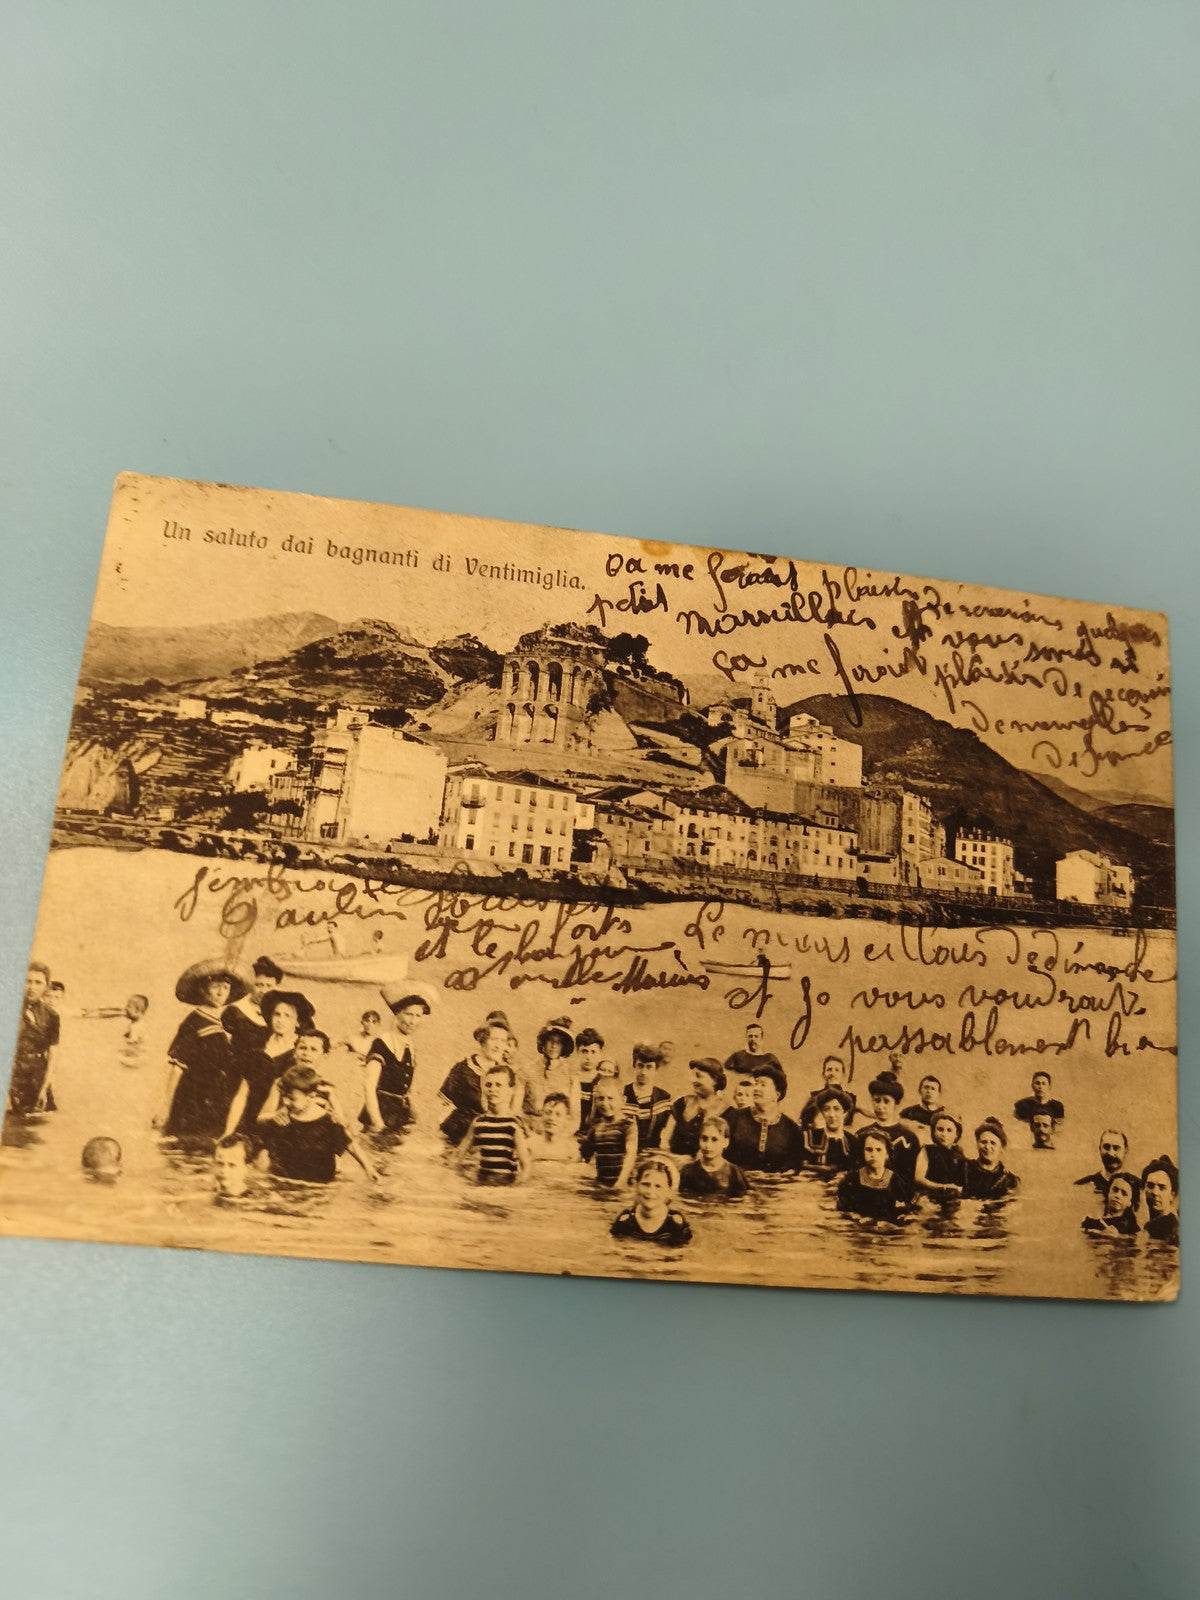 Un saluto dai bagnanti di Ventimiglia.
ça me ferait plaisir De recevoir quelques
petit Marseillais et vous
ça me ferait plaisir De recevoir
De nouvelles
De
J'embrasse
Paulin bien fort
et le bonjour
et mille Marius
Le Marseillais Dedimanche
et je vous voudrait
passablement bien